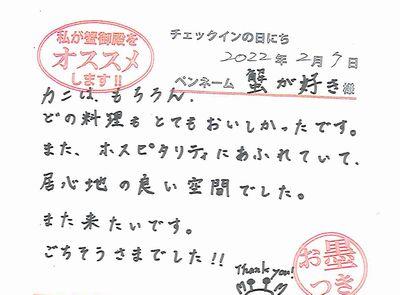 私が蟹御殿を
オススメ
します!!
チェックインの日にち
2022年2月7日
ペンネーム 蟹が好き 様
カニは、もちろん、
どの料理も とてもおいしかったです。
また、ホスピタリティにあふれていて、
居心地の良い空間でした。
また来たいです。
ごちそうさまでした!!
Thank you!
お墨
つき